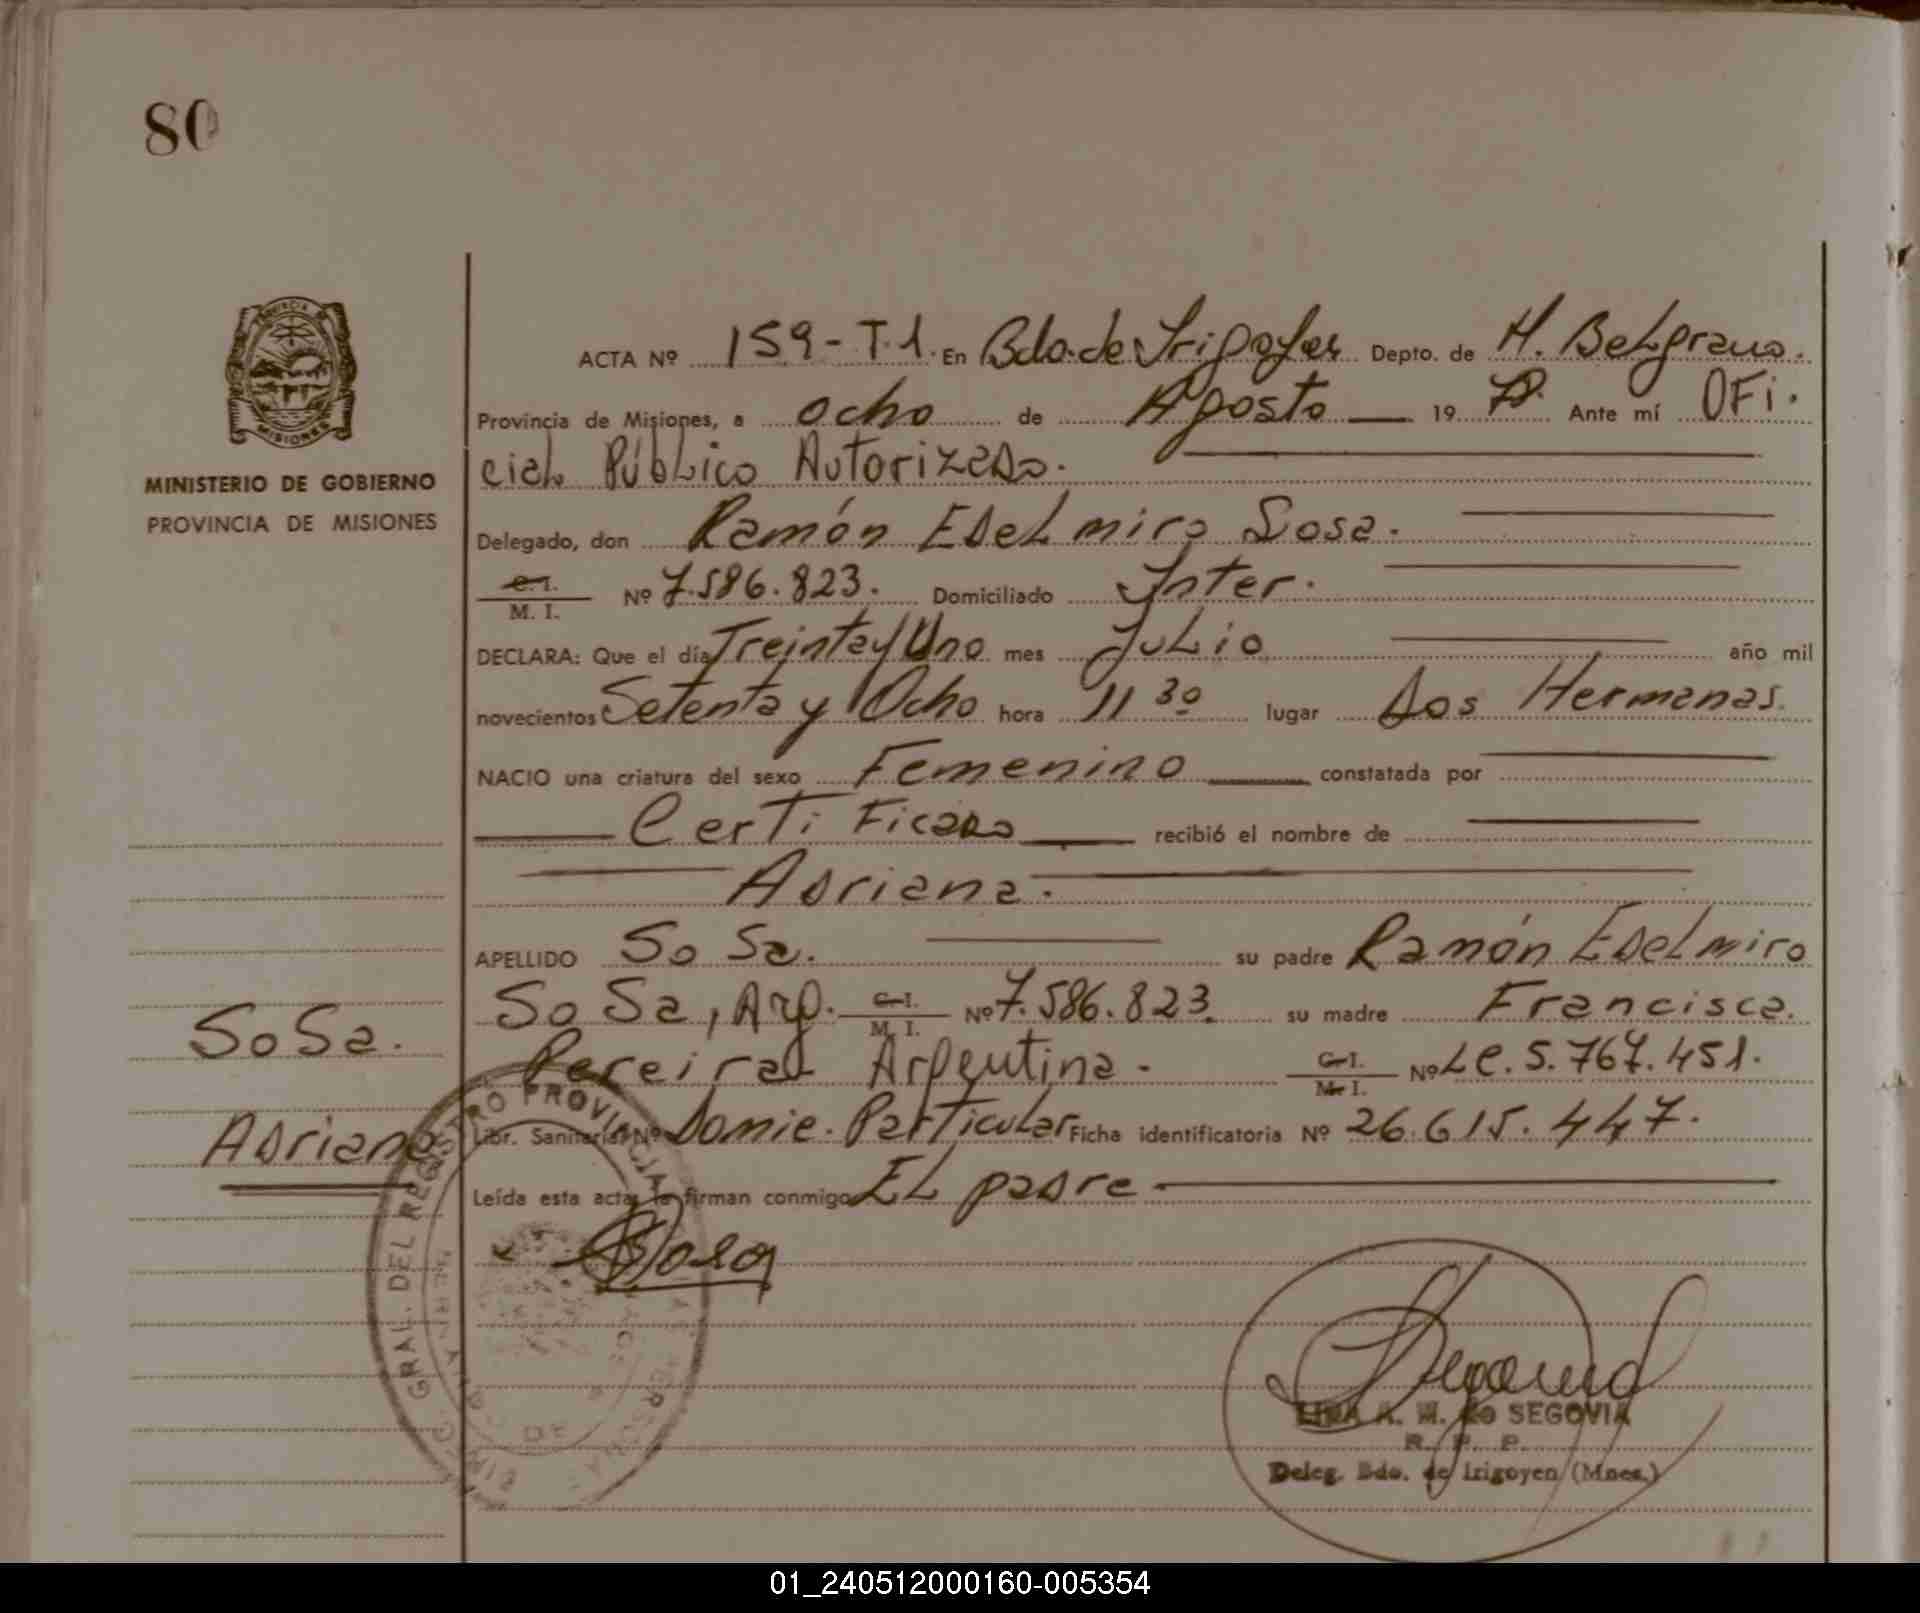 80
MINISTERIO DE GOBIERNO
PROVINCIA DE MISIONES
ACTA Nº 159-T.1. En Bdo. de Irigoyen Depto. de M. Belgrano.
Provincia de Misiones, a ocho de Agosto 19 78. Ante mí OFi.
ciaL PúbLico Autorizado.
Delegado, don Ramón EdeLmiro Sosa.
C. I.
M. I. Nº 7.586.823. Domiciliado Inter.
DECLARA: Que el día Treinta y Uno mes JuLio año mil
novecientos Setenta y Ocho hora 11 30 lugar Dos Hermanas.
NACIO una criatura del sexo Femenino constatada por
CertiFicado recibió el nombre de
Adriana.
APELLIDO SoSa. su padre Ramón EdeLmiro
SoSa, Arg. C. I. M. I. Nº 7.586.823. su madre Francisca
Pereira Argentina. C. I. M. I. Nº Lc. 5.767.451.
Libr. Sanitaria Nº Domic. Particular Ficha identificatoria Nº 26.615.447.
Leída esta acta, la firman conmigo EL padre
SoSa.
Adriana
Sosa
GRAL. DEL REGISTRO PROVINCIAL
DE
LINA A. M. de SEGOVIA
R. P. P.
Deleg. Bdo. de Irigoyen (Mnes.)
01_240512000160-005354